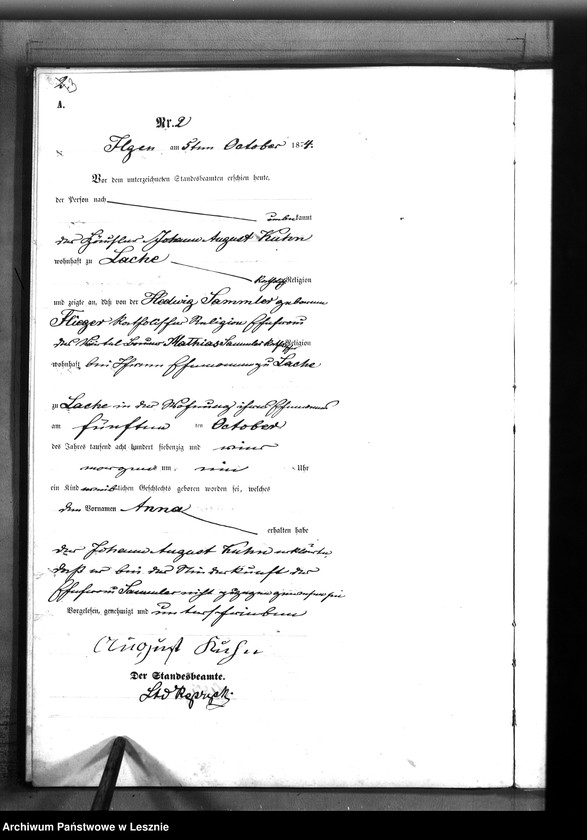 A.
Nr. 2
Ilgen am 5ten October 1874.
Vor dem unterzeichneten Standesbeamten erschien heute,
der Person nach
bekannt
der Häusler Johann August Kuhn
wohnhaft zu Lache
Religion
und zeigte an, daß von der Hedwig Sammler geborene
Flieger katholischer Religion Ehefrau
des Mathias Sammler Religion
wohnhaft bei ihrem Ehemann zu Lache
zu Lache in der Wohnung ihres Ehemannes
am fünften ten October
des Jahres tausend acht hundert siebenzig und vier
morgens um Uhr
ein Kind weiblichen Geschlechts geboren worden sei, welches
den Vornamen Anna
erhalten habe
der Johann August Kuhn erklärte
daß er bei der Niederkunft der
Ehefrau Sammler nicht zugegen gewesen sei
Vorgelesen, genehmigt und unterschrieben
August Kuhn
Der Standesbeamte.
Archiwum Państwowe w Lesznie